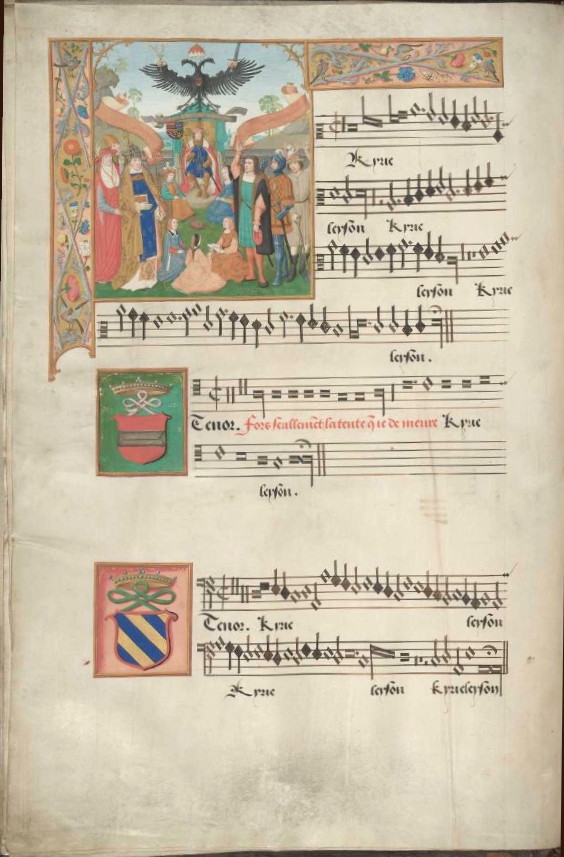 Kyrie
leyson Kyrie
leyson Kyrie
leyson.
Tenor. Fors seullemēt latente q̄ ie de meure Kyrie
leyson.
Tenor. Kyrie leyson
Kyrie leyson kyrieleyson